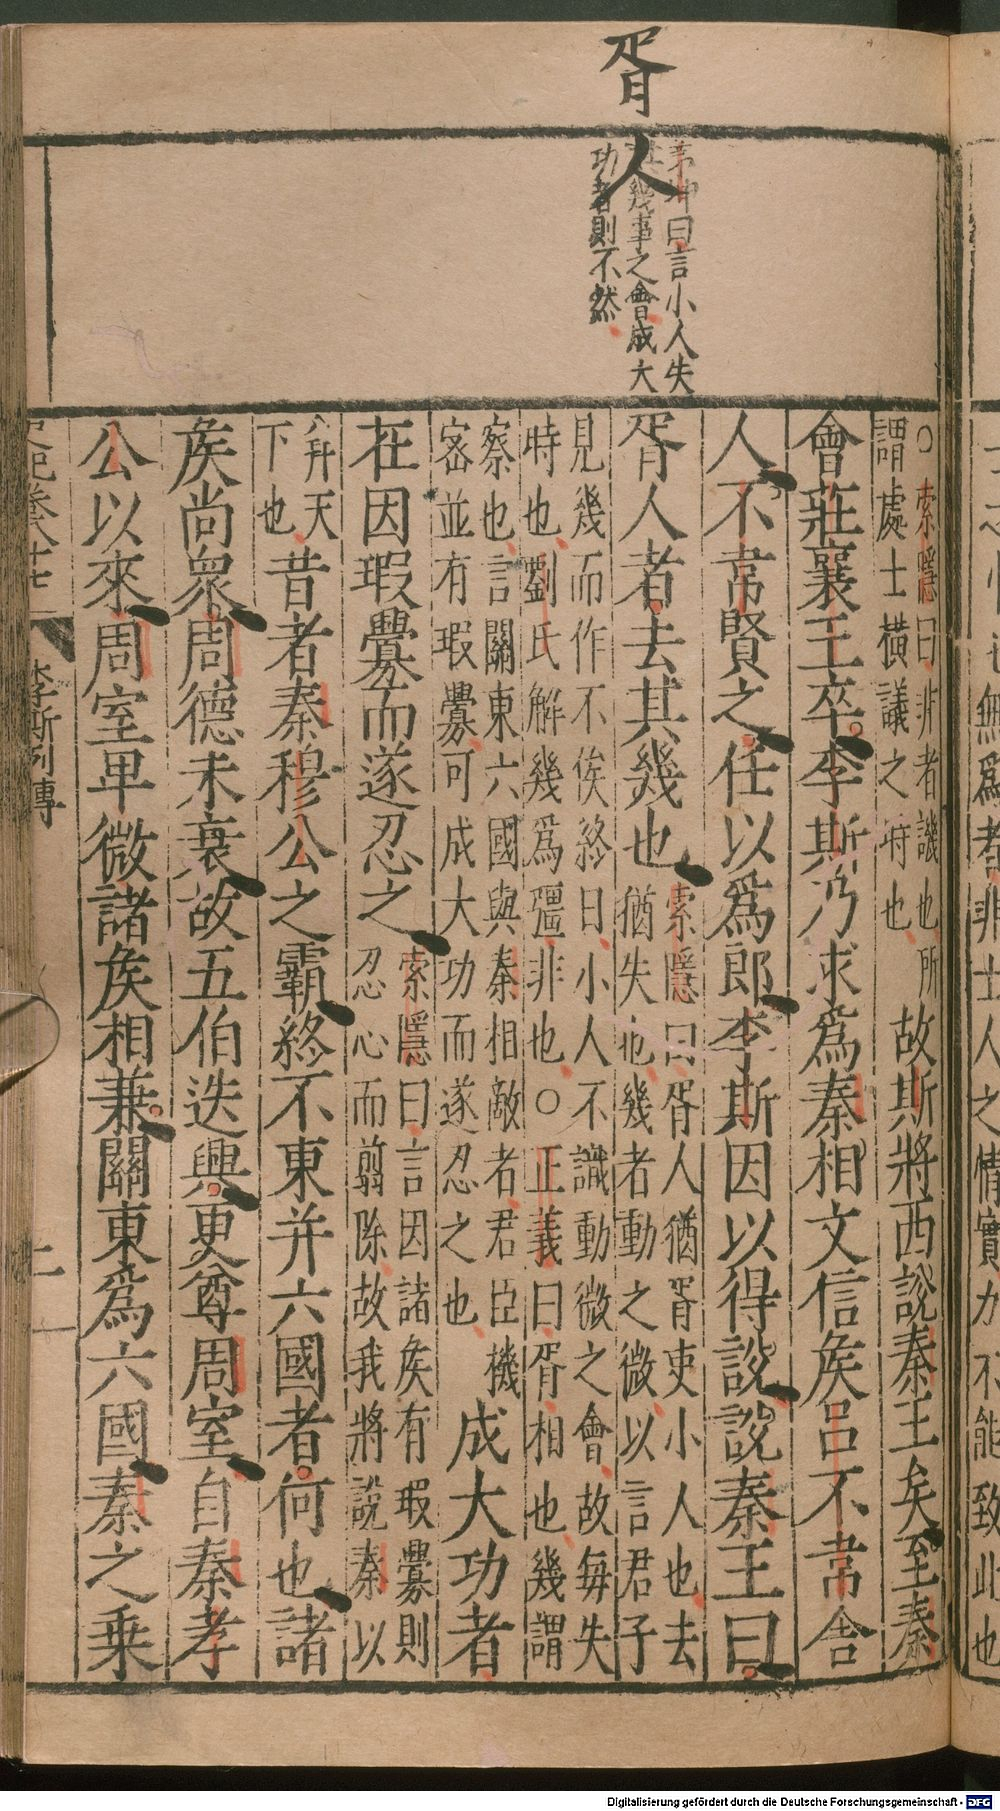 胥人
茅坤曰言小人失
幾事之會成大
功者則不然
○索隱曰非者譏也所
謂處士橫議之時也
故斯將西說秦王矣至秦
會莊襄王卒李斯乃求爲秦相文信矦呂不韋舍
人不韋賢之任以爲郎李斯因以得說說秦王曰
胥人者去其幾也
索隱曰胥人猶胥吏小人也去
猶失也幾者動之微以言君子
見幾而作不俟終日小人不識動微之會故每失
時也劉氏解幾爲彊非也○正義曰胥相也幾謂
察也言關東六國與秦相敵者君臣機
密並有瑕釁可成大功而遂忍之也
成大功者
在因瑕釁而遂忍之
索隱曰言因諸矦有瑕釁則
忍心而翦除故我將說秦以
并天
下也
昔者秦穆公之霸終不東并六國者何也諸
矦尚衆周德未衰故五伯迭興更尊周室自秦孝
公以來周室卑微諸矦相兼關東爲六國秦之乘
李斯列傳
士之情也
無爲者非士人之情實力不能致此也
Digitalisierung gefördert durch die Deutsche Forschungsgemeinschaft - DFG